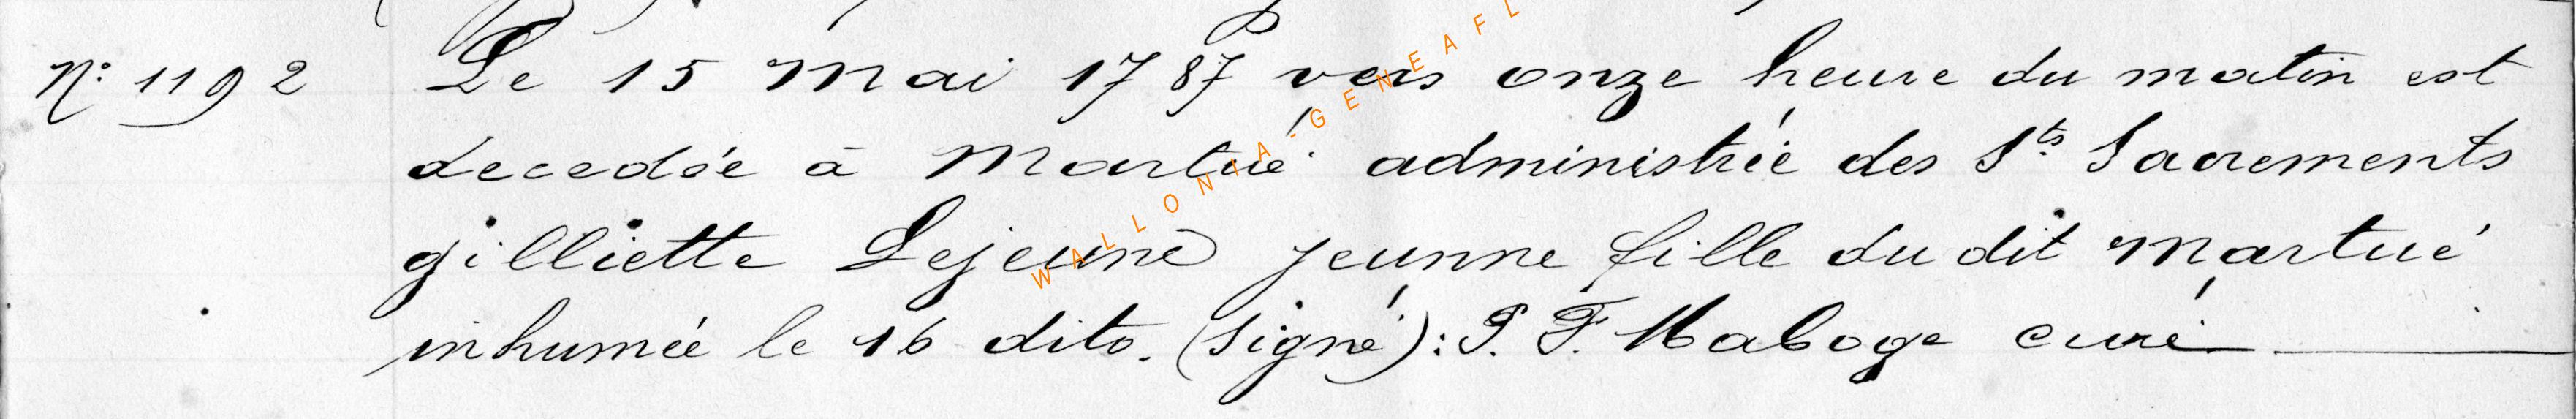 N° 1192 Le 15 Mai 1787 vers onze heure du matin est
decedée à Martué administrée des Sts Sacrements
gilliette Lejeune jeunne fille du dit Martué
inhumée le 16 dito. (Signé): P. F. Maboge curé
WALLONIA-GENEAFL